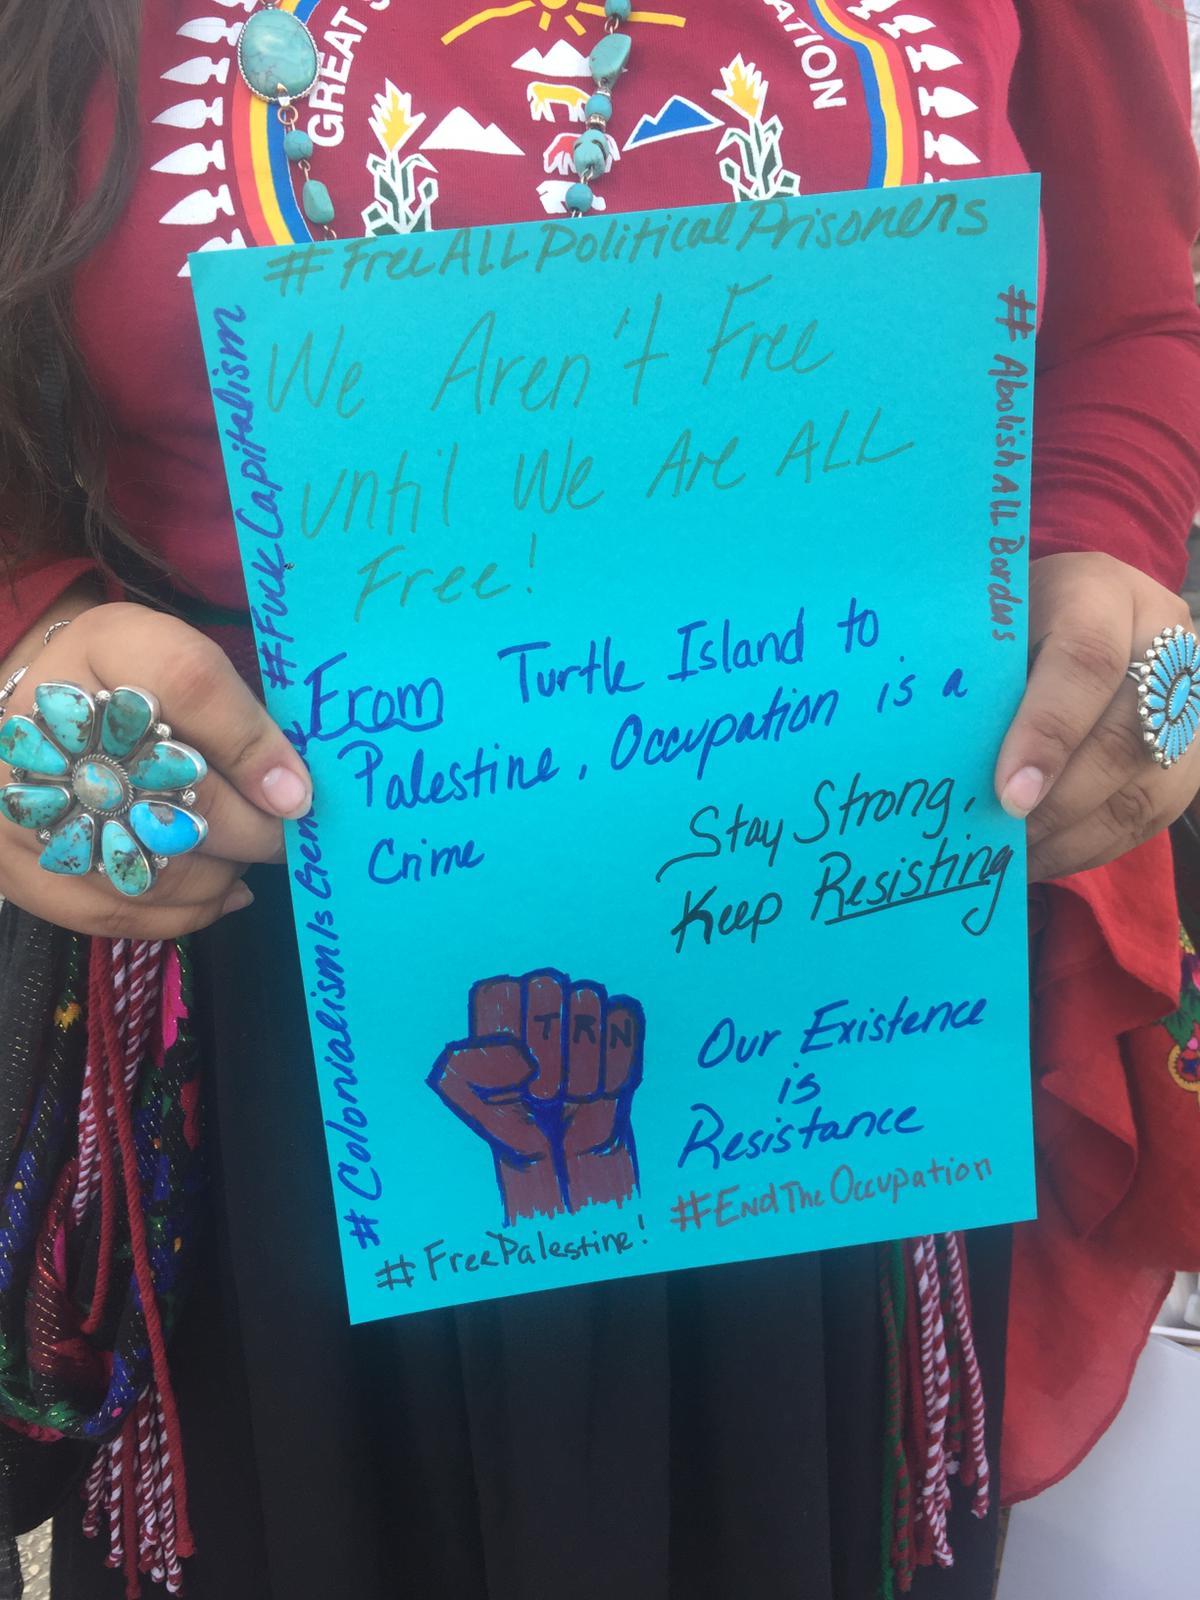 GREAT S
ATION
#FreeALLPoliticalPrisoners
We Aren't Free
until We Are ALL
Free!
From Turtle Island to
Palestine, Occupation is a
Crime
Stay Strong,
Keep Resisting
TRN
Our Existence
is
Resistance
#EndTheOccupation
#FreePalestine!
#ColonialismIs
#FuckCapitalism
## AbolishALLBorders